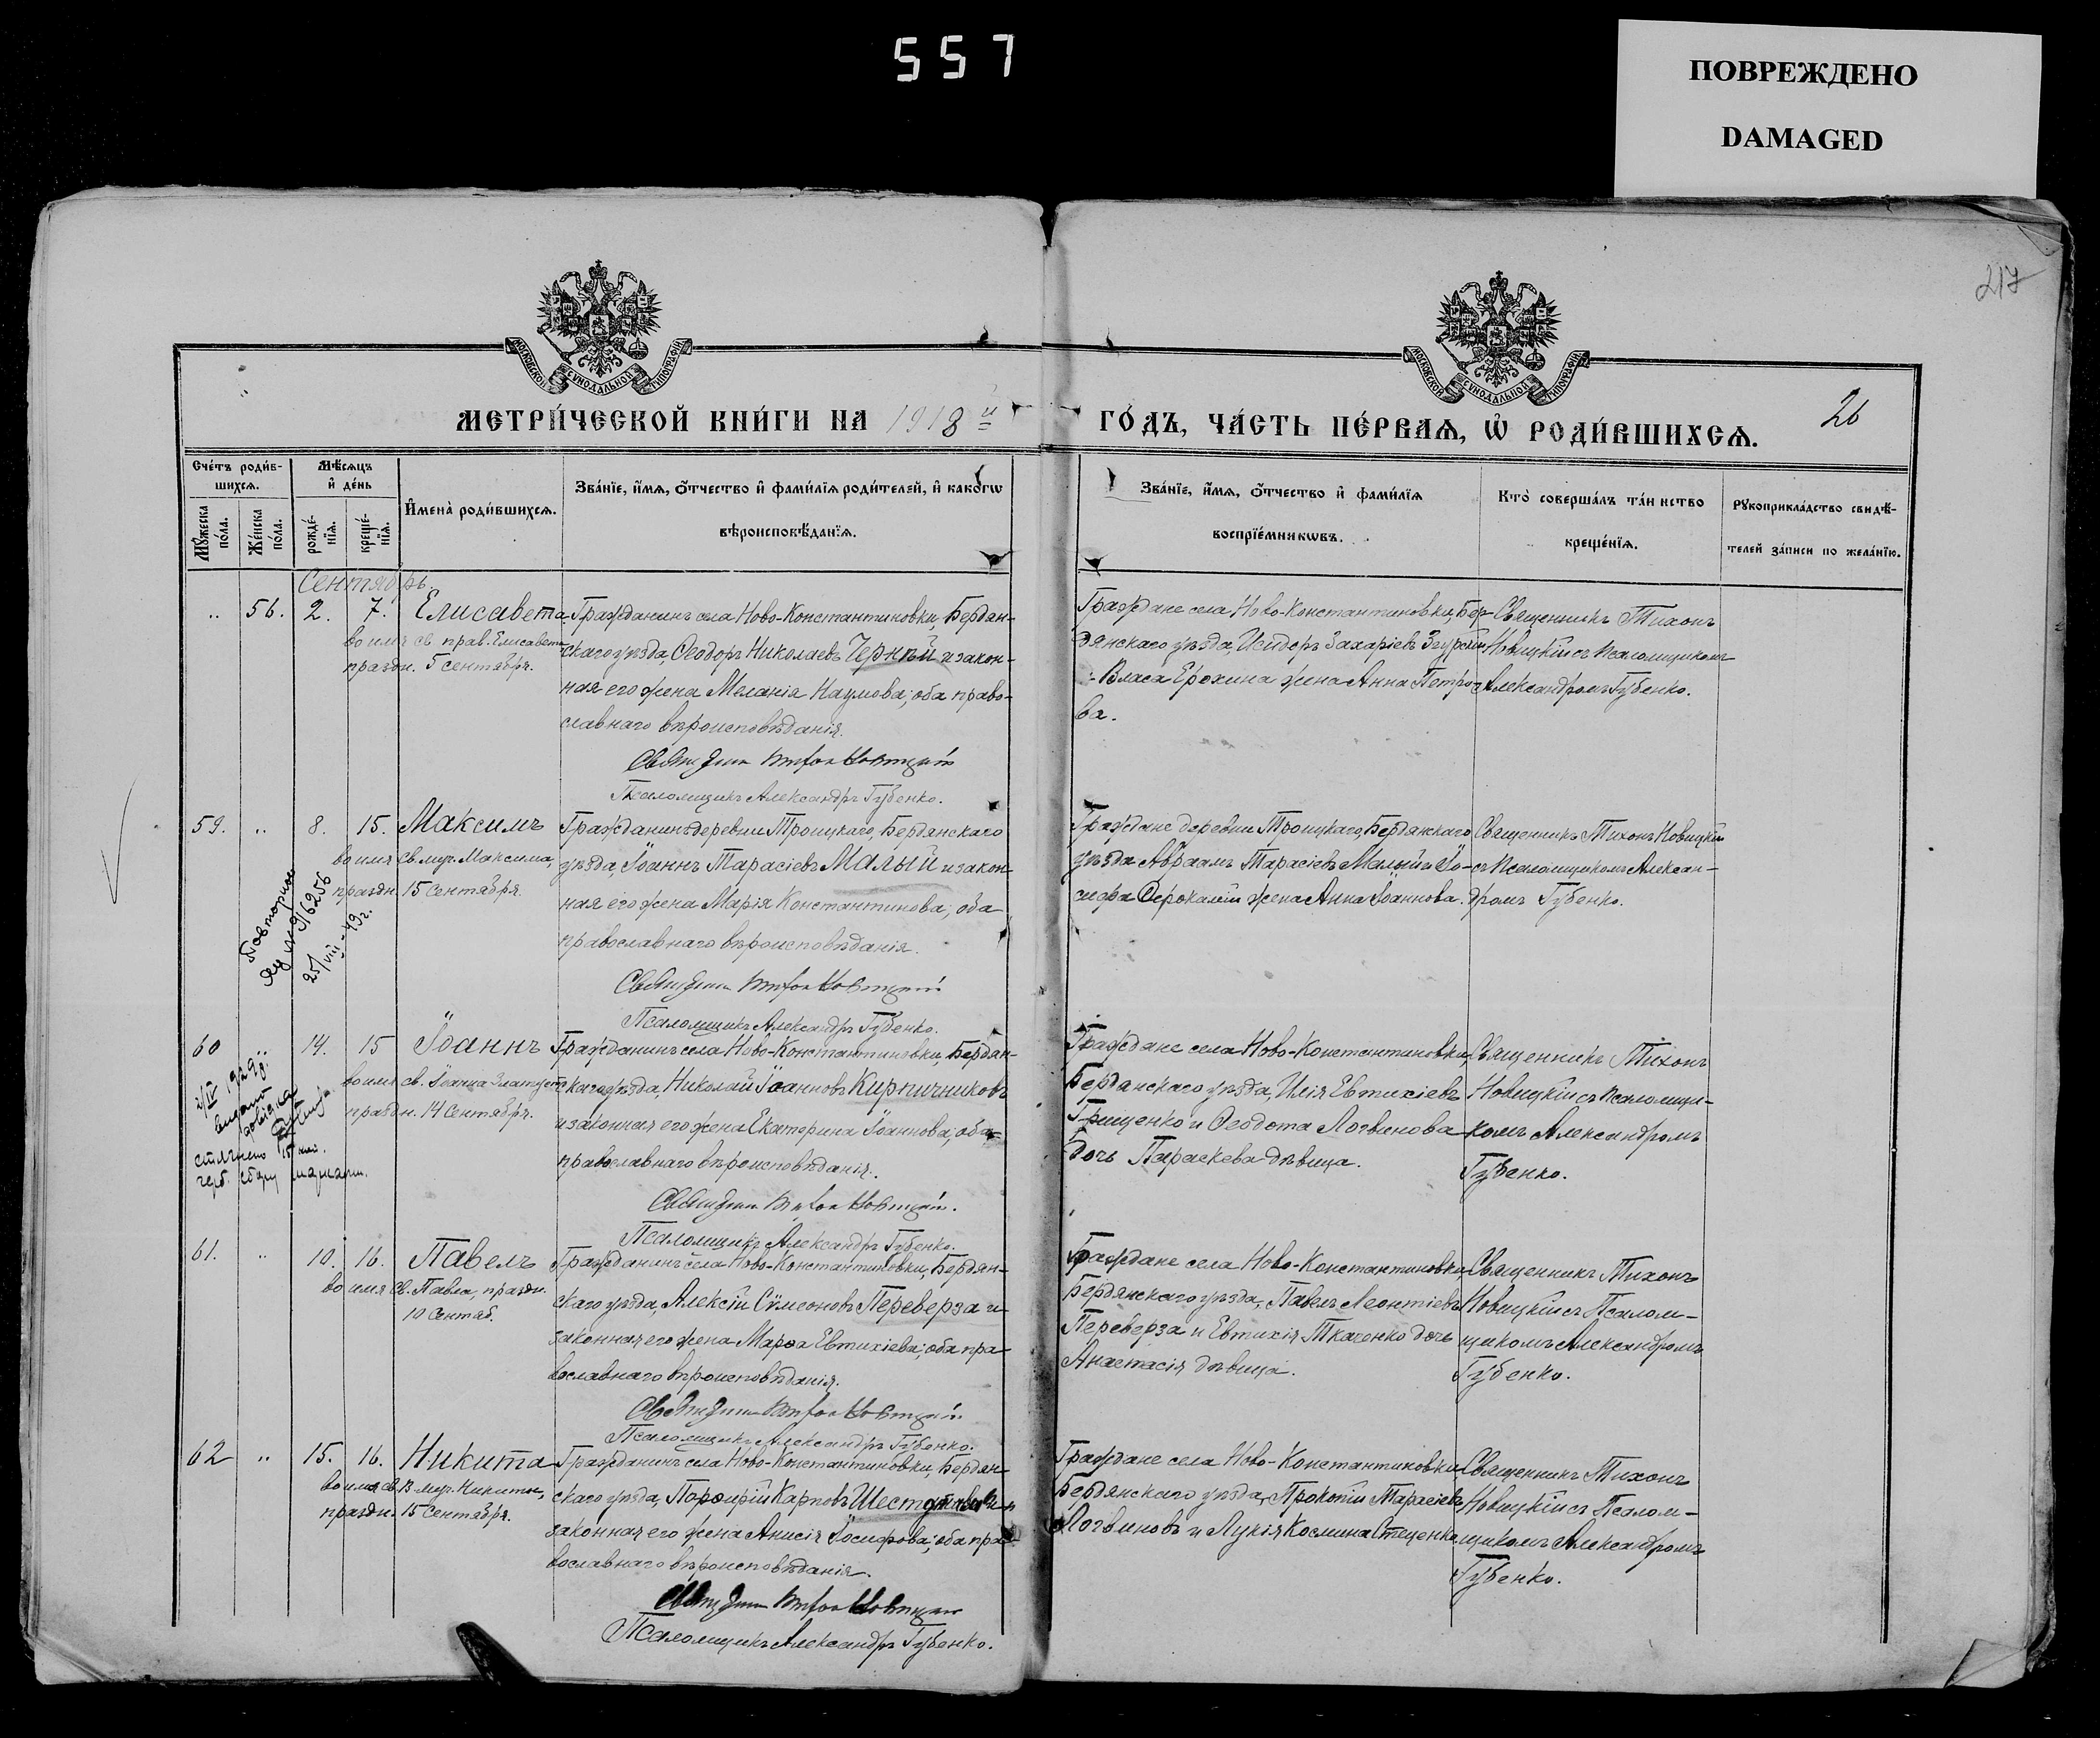 557
ПОВРЕЖДЕНО
DAMAGED
217
МОСКОВСКОЙ СѴНОДАЛЬНОЙ ТИПОГРАФІИ
МОСКОВСКОЙ СѴНОДАЛЬНОЙ ТИПОГРАФІИ
МЕТРИ́ЧЕСКОЙ КНИ́ГИ НА 1918й ГО́ДЪ, ЧА́СТЬ ПЕ́РВАѦ, Ѡ҆ РОДИ́ВШИХСѦ.
26
Сче́тъ роди́в-
шихсѧ.
Мꙋ́жеска по́ла.
Же́нска по́ла.
Мѣ́сѧцъ
и҆ де́нь
рожде́-
нїѧ.
креще́-
нїѧ.
И҆мена̀ роди́вшихсѧ.
Зва́нїе, и҆́мѧ, ѻ҆́тчество и҆ фами́лїѧ роди́телей, и҆ како́гѡ
вѣроисповѣ́данїѧ.
Зва́нїе, и҆́мѧ, ѻ҆́тчество и҆ фами́лїѧ
воспрїе́мникѡвъ.
Кто̀ соверша́лъ та́инство
креще́нїѧ.
Рꙋкоприкла́дство свидѣ́-
телей за́писи по жела́нїю.
Сентябрь.
„ 56. 2. 7. Елисавета
во имя св. прав. Елисаветы
праздн. 5 сентября.
Гражданинъ села Ново-Константиновки, Бердян-
скаго уѣзда, Ѳеодоръ Николаевъ Черный и закон-
ная его жена Меланія Наумова; оба право-
славнаго вѣроисповѣданія.
Священникъ Тихонъ Новицкій
Псаломщикъ Александръ Губенко.
Граждане села Ново-Константиновки, Бер-
дянскаго уѣзда, Исидоръ Захаріевъ
Власа Ерохина жена Анна Петро-
ва.
Священникъ Тихонъ
Новицкій съ псаломщикомъ
Александромъ Губенко.
59. „ 8. 15. Максимъ
во имя св. муч. Максима,
праздн. 15 сентября.
Повторное
№ 916256
25/VIII-49г.
Гражданинъ деревни Троицкаго, Бердянскаго
уѣзда, Іоаннъ Тарасіевъ Малый и закон-
ная его жена Марія Константинова; оба
православнаго вѣроисповѣданія.
Священникъ Тихонъ Новицкій
Псаломщикъ Александръ Губенко.
Граждане деревни Троицкаго, Бердянскаго
уѣзда Авраамъ Тарасіевъ Малый и Іо-
сифа жена Анна Іоаннова.
Священникъ Тихонъ Новицкій
съ псаломщикомъ Алексан-
дромъ Губенко.
60 „ 14. 15 Іоаннъ
во имя св. Іоанна Златоуст
праздн. 14 сентября.
1929
гєрб. збору
Гражданинъ села Ново-Константиновки, Бердян-
скаго уѣзда, Николай Іоанновъ Кирпичниковъ
и законная его жена Екатерина Іоаннова; оба
православнаго вѣроисповѣданія.
Священникъ Тихонъ Новицкій.
Псаломщикъ Александръ Губенко.
Граждане села Ново-Константиновки,
Бердянскаго уѣзда, Илія Евтихіевъ
Грищенко и Ѳеодота Логвинова
дочь Параскева дѣвица.
Священникъ Тихонъ
Новицкій съ псаломщи-
комъ Александромъ
Губенко.
61. „ 10. 16. Павелъ
во имя св. Павла, праздн.
10 сентяб.
Гражданинъ села Ново-Константиновки, Бердян-
скаго уѣзда, Алексій Сѵмеоновъ Переверза и
законная его жена Марѳа Евтихіева; оба пра-
вославнаго вѣроисповѣданія.
Священникъ Тихонъ Новицкій
Псаломщикъ Александръ Губенко.
Граждане села Ново-Константиновки,
Бердянскаго уѣзда, Павелъ Леонтіевъ
Переверза и Евтихія Ткаченко дочь
Анастасія дѣвица.
Священникъ Тихонъ
Новицкій съ Псалом-
щикомъ Александромъ
Губенко.
62 „ 15. 16. Никита
во имя св. В. муч. Никиты,
праздн. 15 сентября.
Гражданинъ села Ново-Константиновки, Бердян-
скаго уѣзда, Порфирій Карповъ и
законная его жена Анисія Іосифова; оба пра-
вославнаго вѣроисповѣданія.
Священникъ Тихонъ Новицкій
Псаломщикъ Александръ Губенко.
Граждане села Ново-Константиновки
Бердянскаго уѣзда, Прокопій Тарасіевъ
Логвиновъ и Лукія Космина Стеценко
Священникъ Тихонъ
Новицкій съ Псалом-
щикомъ Александромъ
Губенко.